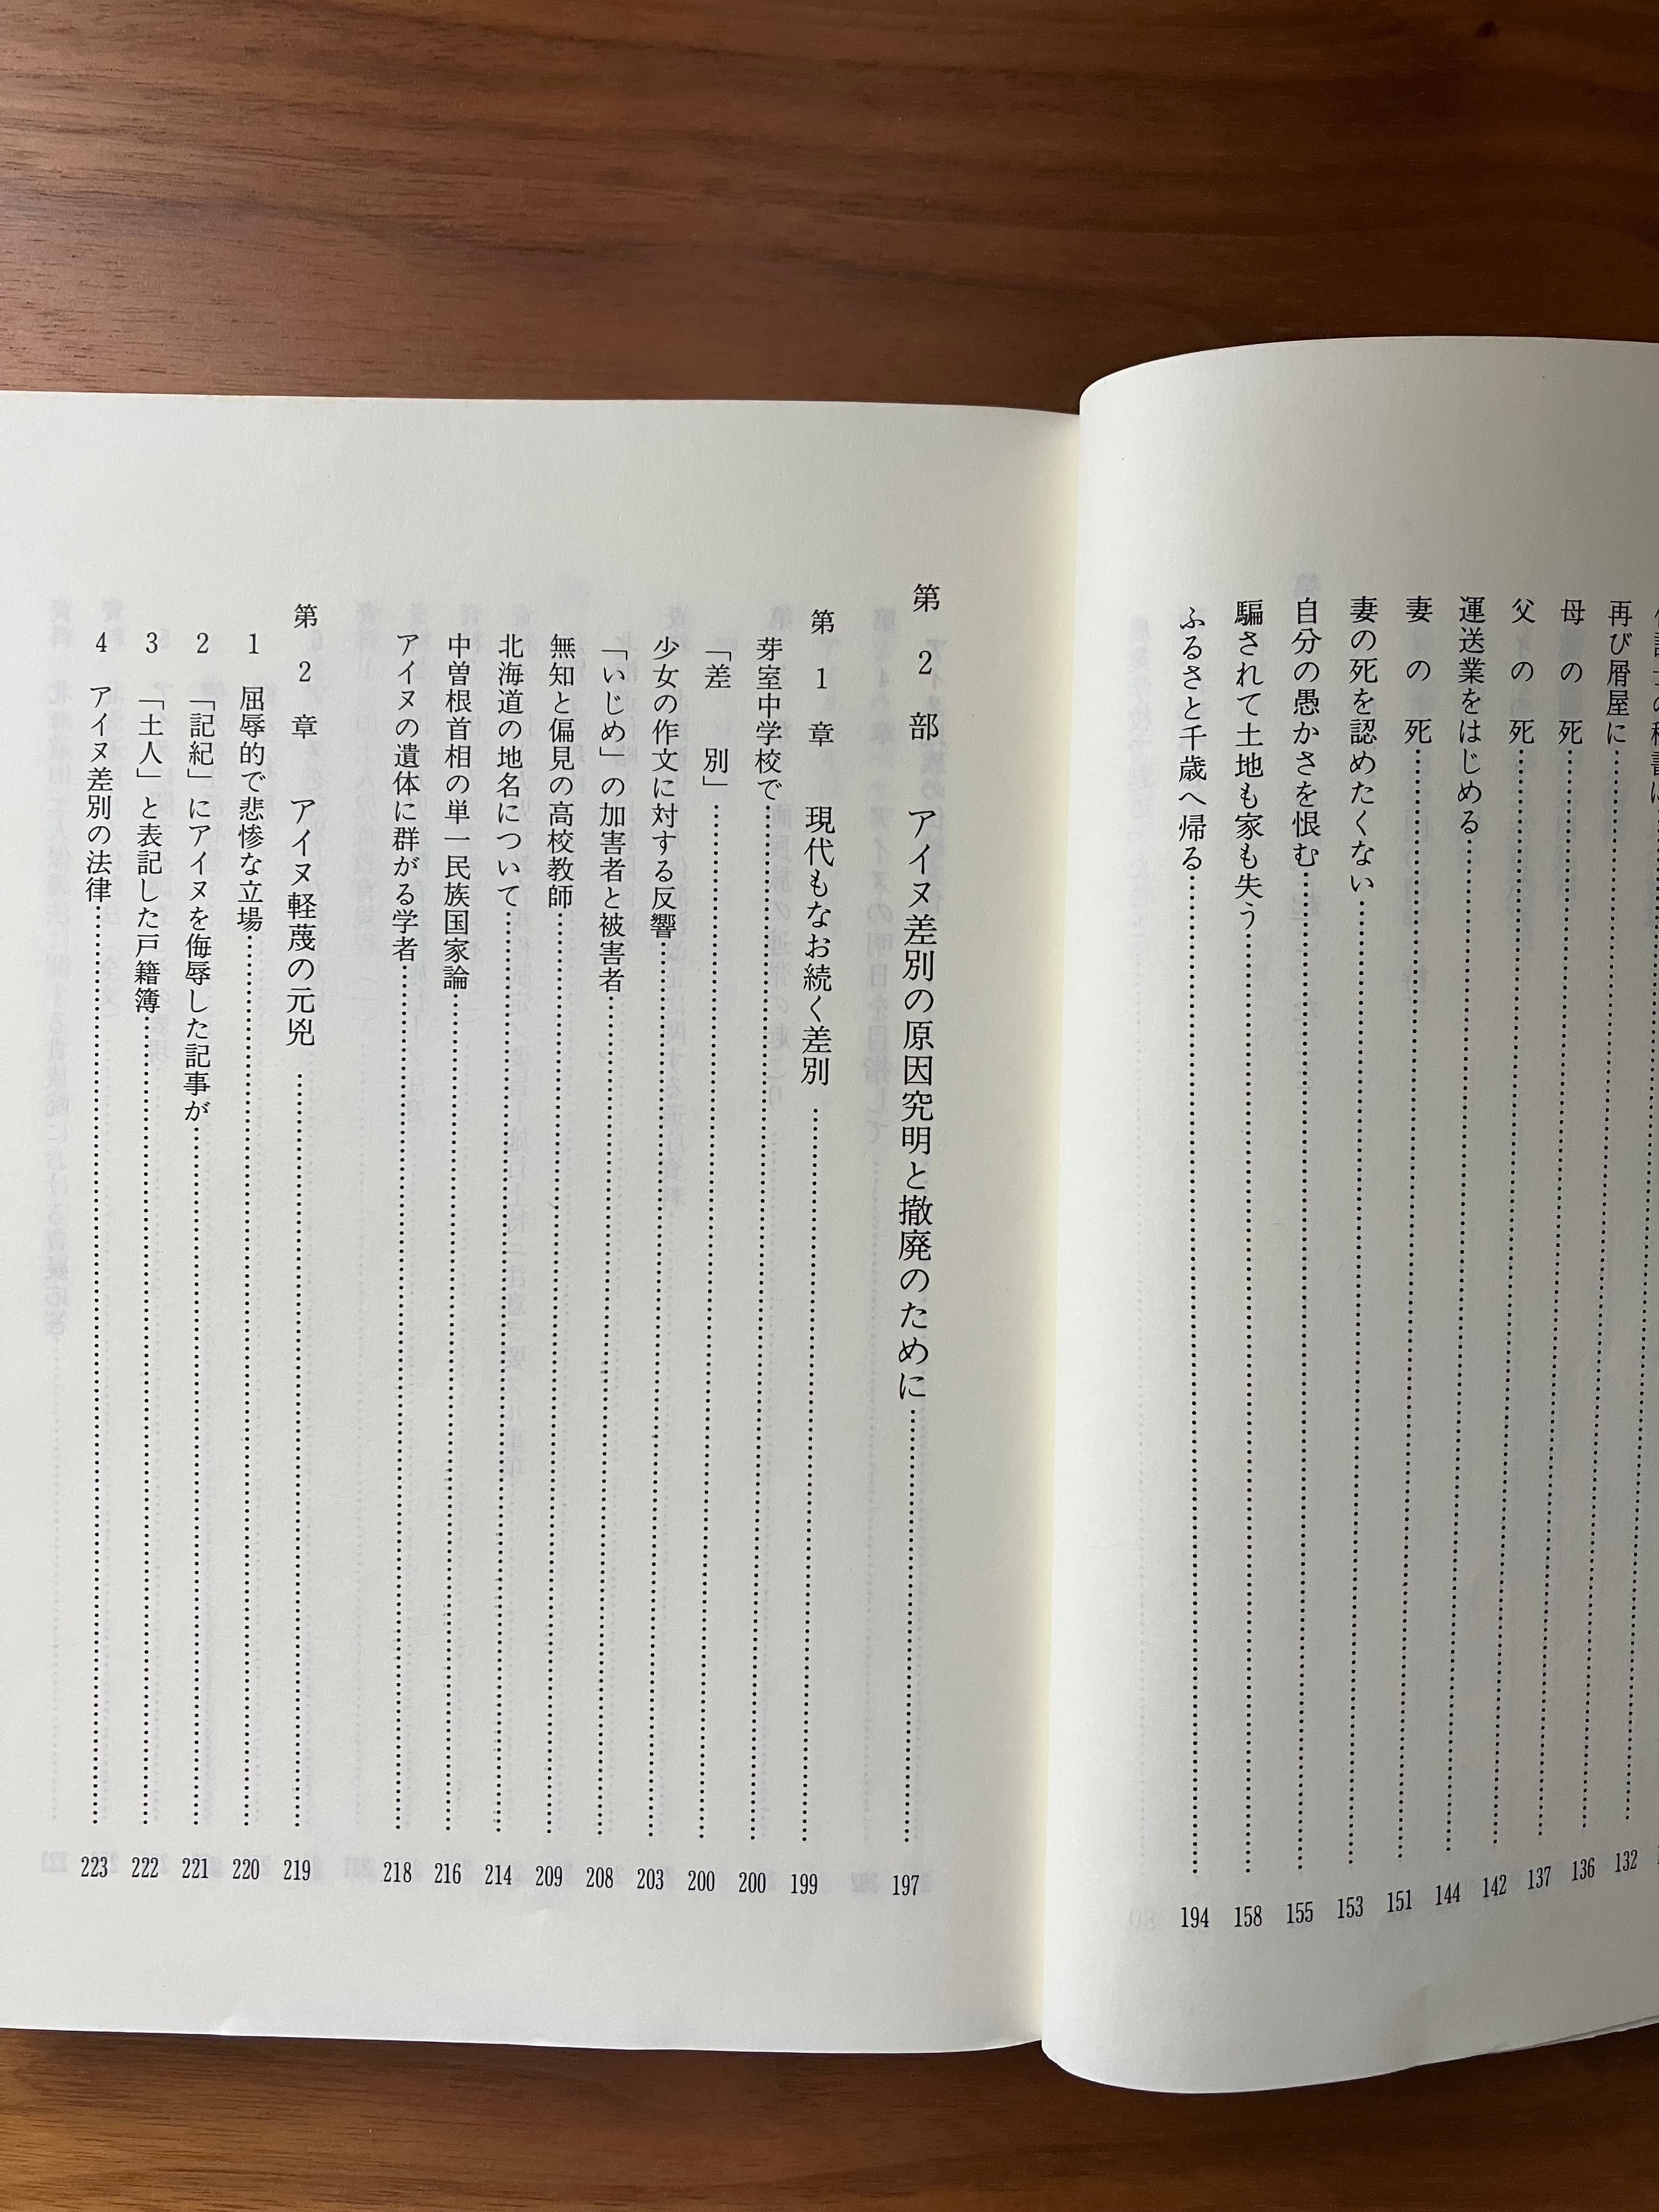 再び屑屋に……132
母の死……136
父の死……137
運送業をはじめる……142
妻の死……144
妻の死を認めたくない……151
自分の愚かさを恨む……153
騙されて土地も家も失う……155
ふるさと千歳へ帰る……158
194
第2部 アイヌ差別の原因究明と撤廃のために……197
第1章 現代もなお続く差別……199
芽室中学校で……200
「差別」……200
少女の作文に対する反響……203
「いじめ」の加害者と被害者……208
無知と偏見の高校教師……209
北海道の地名について……214
中曽根首相の単一民族国家論……216
アイヌの遺体に群がる学者……218
第2章 アイヌ軽蔑の元兇……219
1 屈辱的で悲惨な立場……220
2 「記紀」にアイヌを侮辱した記事が……221
3 「土人」と表記した戸籍簿……222
4 アイヌ差別の法律……223